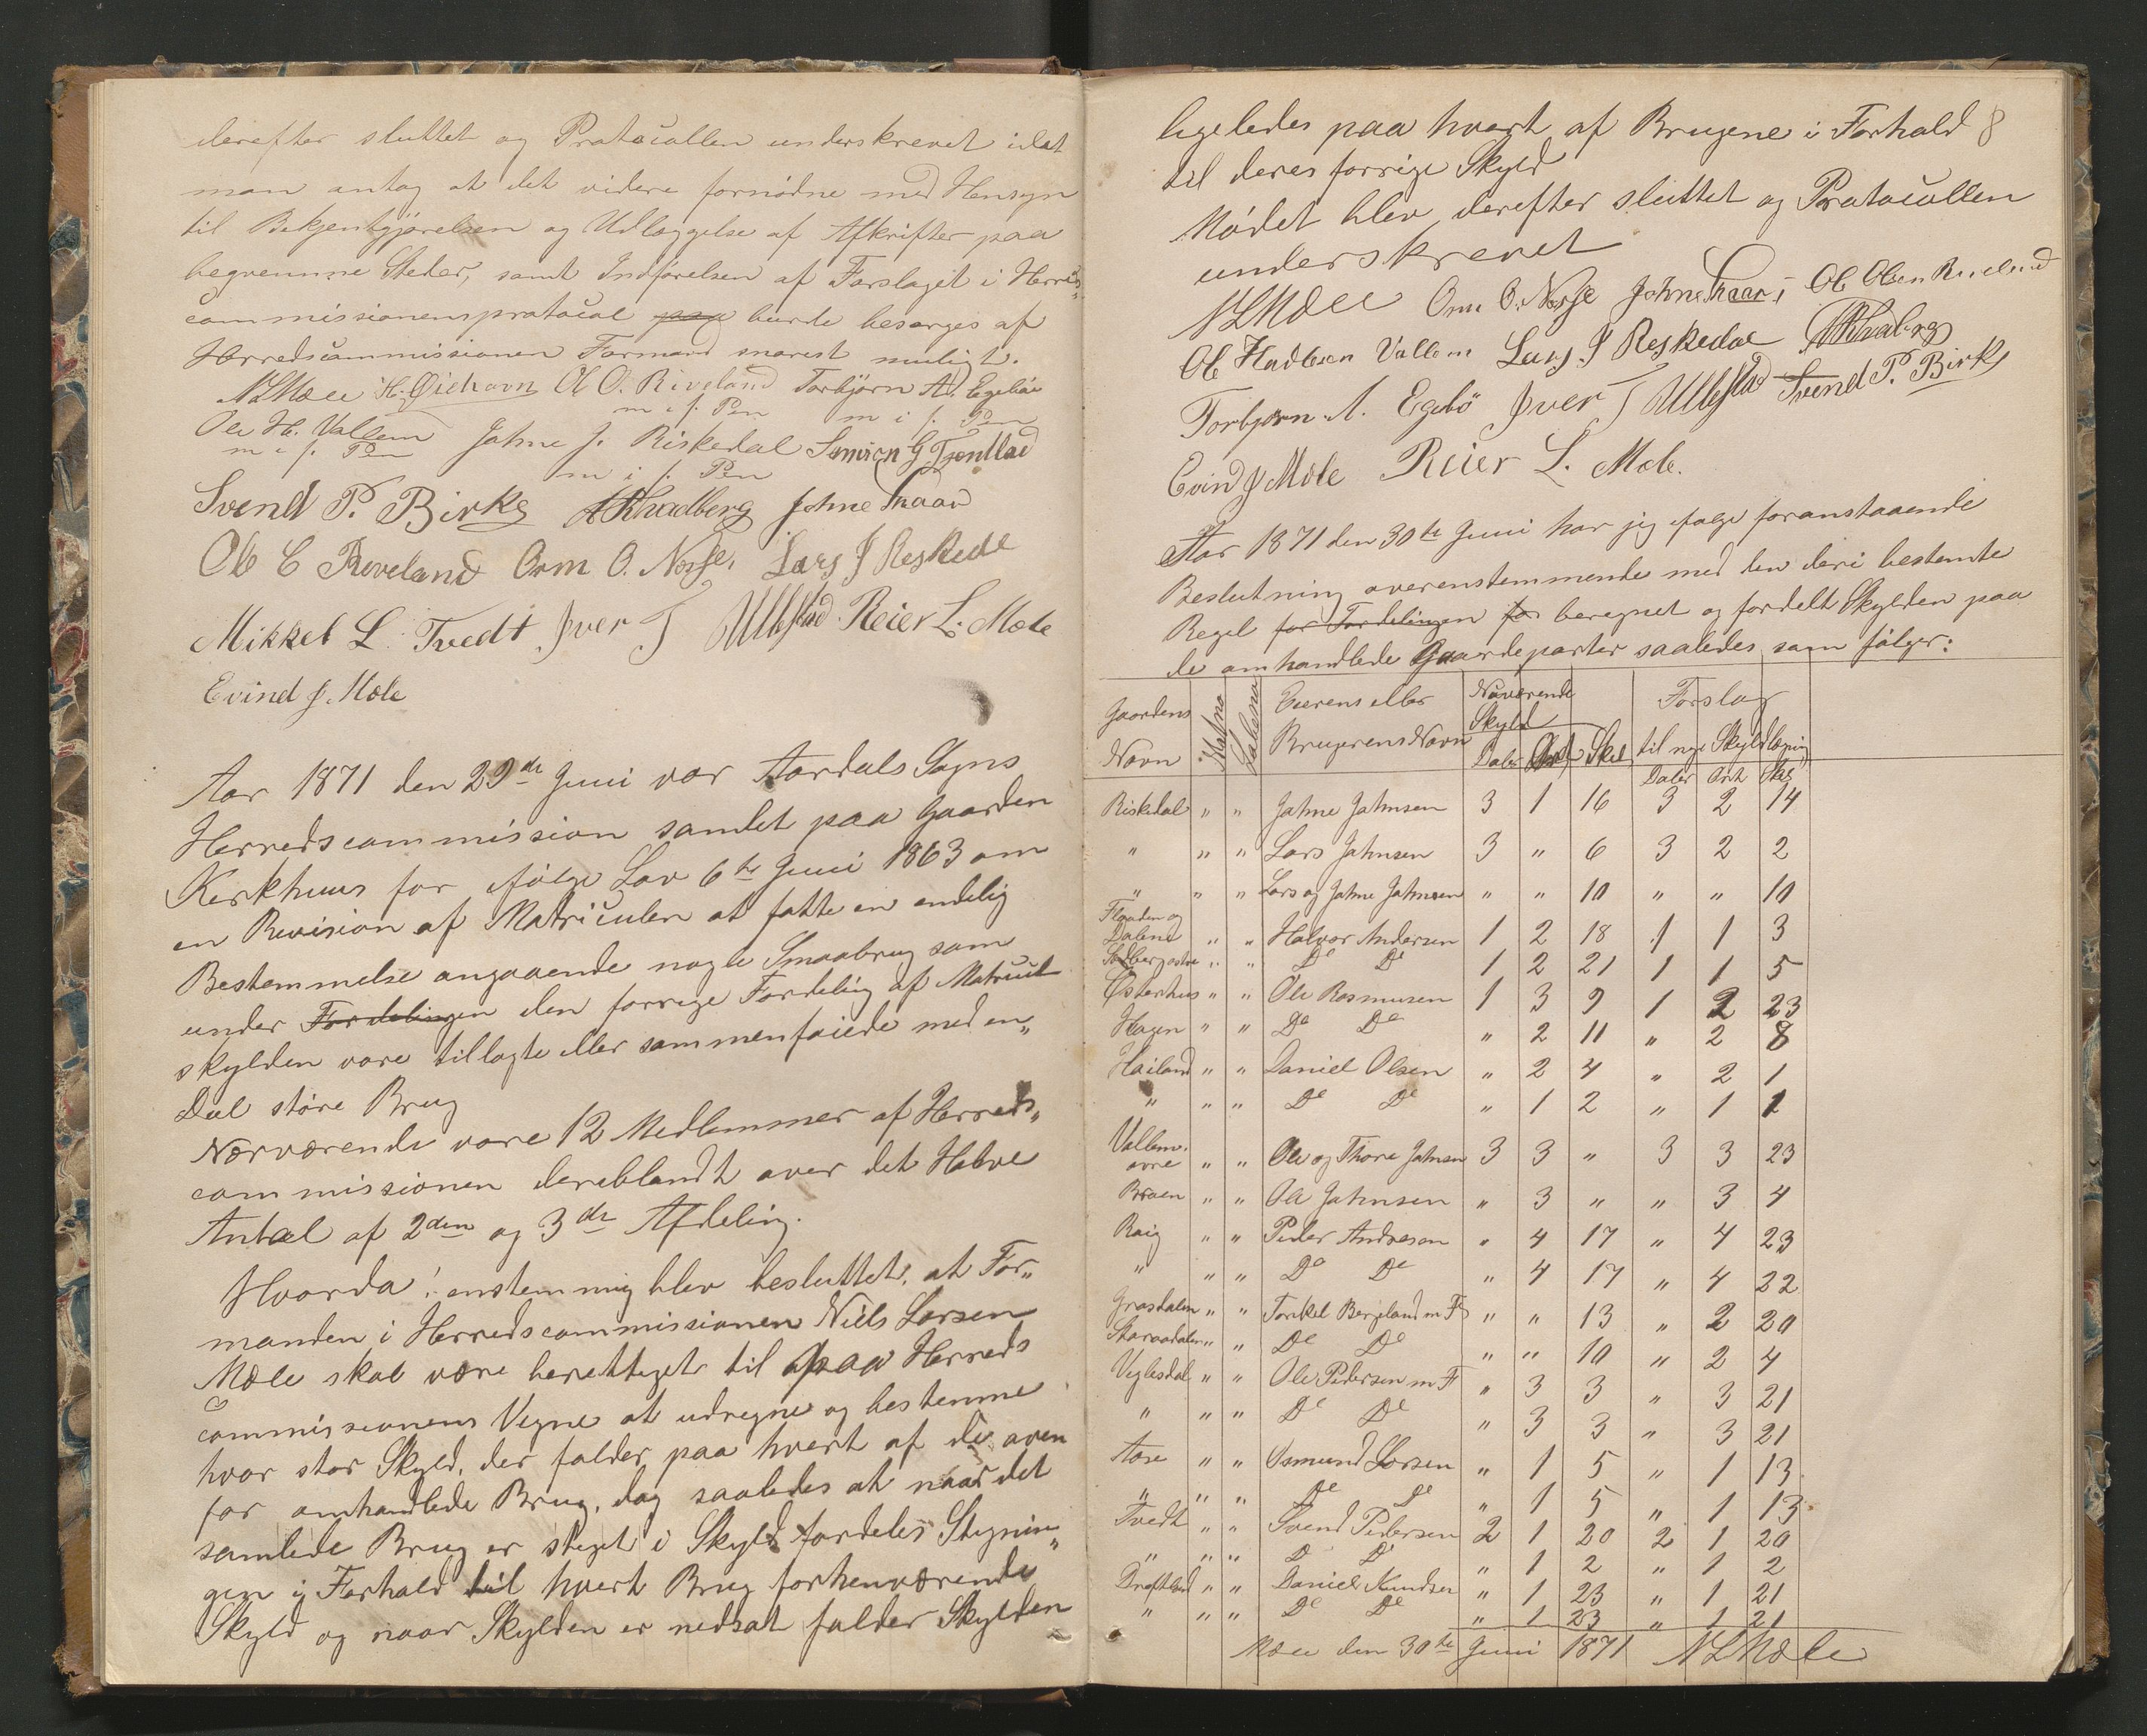 derefter sluttet og Protocollen underskrevet idet
man antog at det videre fornödne med Hensyn
til Bekjentgjørelsen og Udlæggelse af Afkrifter paa
beqvemme Steder, samt Indførelsen af Forslaget i Herreds„
commissionens protocol paa burde besørges af
Herredscommissionen Formand snarest muligt.
NLMæle H. Øiehavn Ol O. Riveland Torbjörn A. Egebö
m i f. Pen m i f. Pen
Ole H. Vallem Johne J. Riskedal Simion G Tjentlad
m i f. Pen m i f. Pen
Svend P. Birke AKhadberg Johne Traar
Ole C Riveland Orm O. Nesse. Lars J Reskedl
Mikkel L. Tvedt Iver T Ullestad Reier L. Mæle
Evind J. Mæle
Aar 1871 den 29de Juni var Aardals Sogns
Herredscommission samlet paa Gaarden
Kerkhuus for ifølge Lov 6te Juni 1863 om
en Revision af Matriculen at fatte en endelig
Bestemmelse angaaende nogle Smaabrug som
under Fordelingen den forrige Fordeling af Matricul
skylden vare tillagte eller sammenføiede med en„
Deel störe Brug
Nærværende vare 12 Medlemmer af Herreds„
commissionen deriblandt over det Halve
Antal af 2den og 3de Afdeling.
Hvorda! enstemmig blev besluttet, at For„
manden i Herredscommissionen Niels Larsen
Mæle skal være berettiget til paa Herreds
commissionens Vegne at udregne og bestemme
hvor stor Skyld, der falder paa hvert af de oven
for omhandlede Brug, dog saaledes at naar det
samlede Brug er steget i Skyld fordeles Stignin„
gen i Forhold til hvert Brug forhenværende
Skyld og naar Skylden er nedsat falder Skylden
ligeledes paa hvert af Brugene i Forhold 8
til deres forrige Skyld
Mödet blev derefter sluttet og Protocollen
underskrevet
NLMæle Orm O. Nesse Johne Traar, Ole Olsen Riveland
Ole Hadlesen Vallem Lars J Reskedal AKhadberg
Torbjørn A. Egebö Iver T Ullestad Svend P. Birke
Evind J Mæle Reier L. Mæle.
Aar 1871 den 30te Juni har jeg ifølge foranstaaende
Beslutning overenstemmende med den deri bestemte
Regel for Fordelingen for beregnet og fordelt Skylden paa
de omhandlede Gaardeparter saaledes som fölger:
Gaardens Mat no Løbeno Eierens eller Nuværende Forslag
Navn Brugerens Navn Skyld til nye Skyldlægning
Daler Ort Skil Daler Ort Skil
Riskedal „ „ Johne Johnsen 3 1 16 3 2 14
„ „ „ Lars Johnsen 3 „ 6 3 2 2
„ „ „ Lars og Johne Johnsen „ „ 10 „ „ 10
Floaden og
Dalene „ „ Halvor Andersen 1 2 18 1 1 3
„ „ De De 1 2 21 1 1 5
Østerhus „ „ Ole Rasmusen 1 3 9 1 2 23
Hagen „ „ De De „ 2 11 „ 2 8
Hailand „ „ Daniel Olsen „ 2 4 „ 2 1
„ „ „ De De „ 1 2 „ 1 1
Vallem.
øvre „ „ Ole og Thore Johnsen 3 3 „ 3 3 23
Broen „ „ Ole Johnsen „ 3 „ „ 3 4
Roig „ „ Peder Andresen „ 4 17 „ 4 23
„ „ „ De De „ 4 17 „ 4 22
Grasdalen „ „ Torkel Bergeland m Fl „ „ 13 „ 2 20
„ „ De De „ „ 10 „ 2 4
Veglesdal „ „ Ole Pedersen m F „ 3 3 „ 3 21
„ „ „ De De „ 3 3 „ 3 21
Aase „ „ Osmund Larsen „ 1 5 „ 1 13
„ „ „ De De „ 1 5 „ 1 13
Tvedt „ „ Svend Pedersen 2 1 20 2 1 20
„ „ „ D D „ 1 2 „ 1 2
„ „ Daniel Knudsen „ 1 23 „ 1 21
„ „ „ De De „ 1 23 „ 1 21
Mæle den 30te Juni 1871 NLMæle